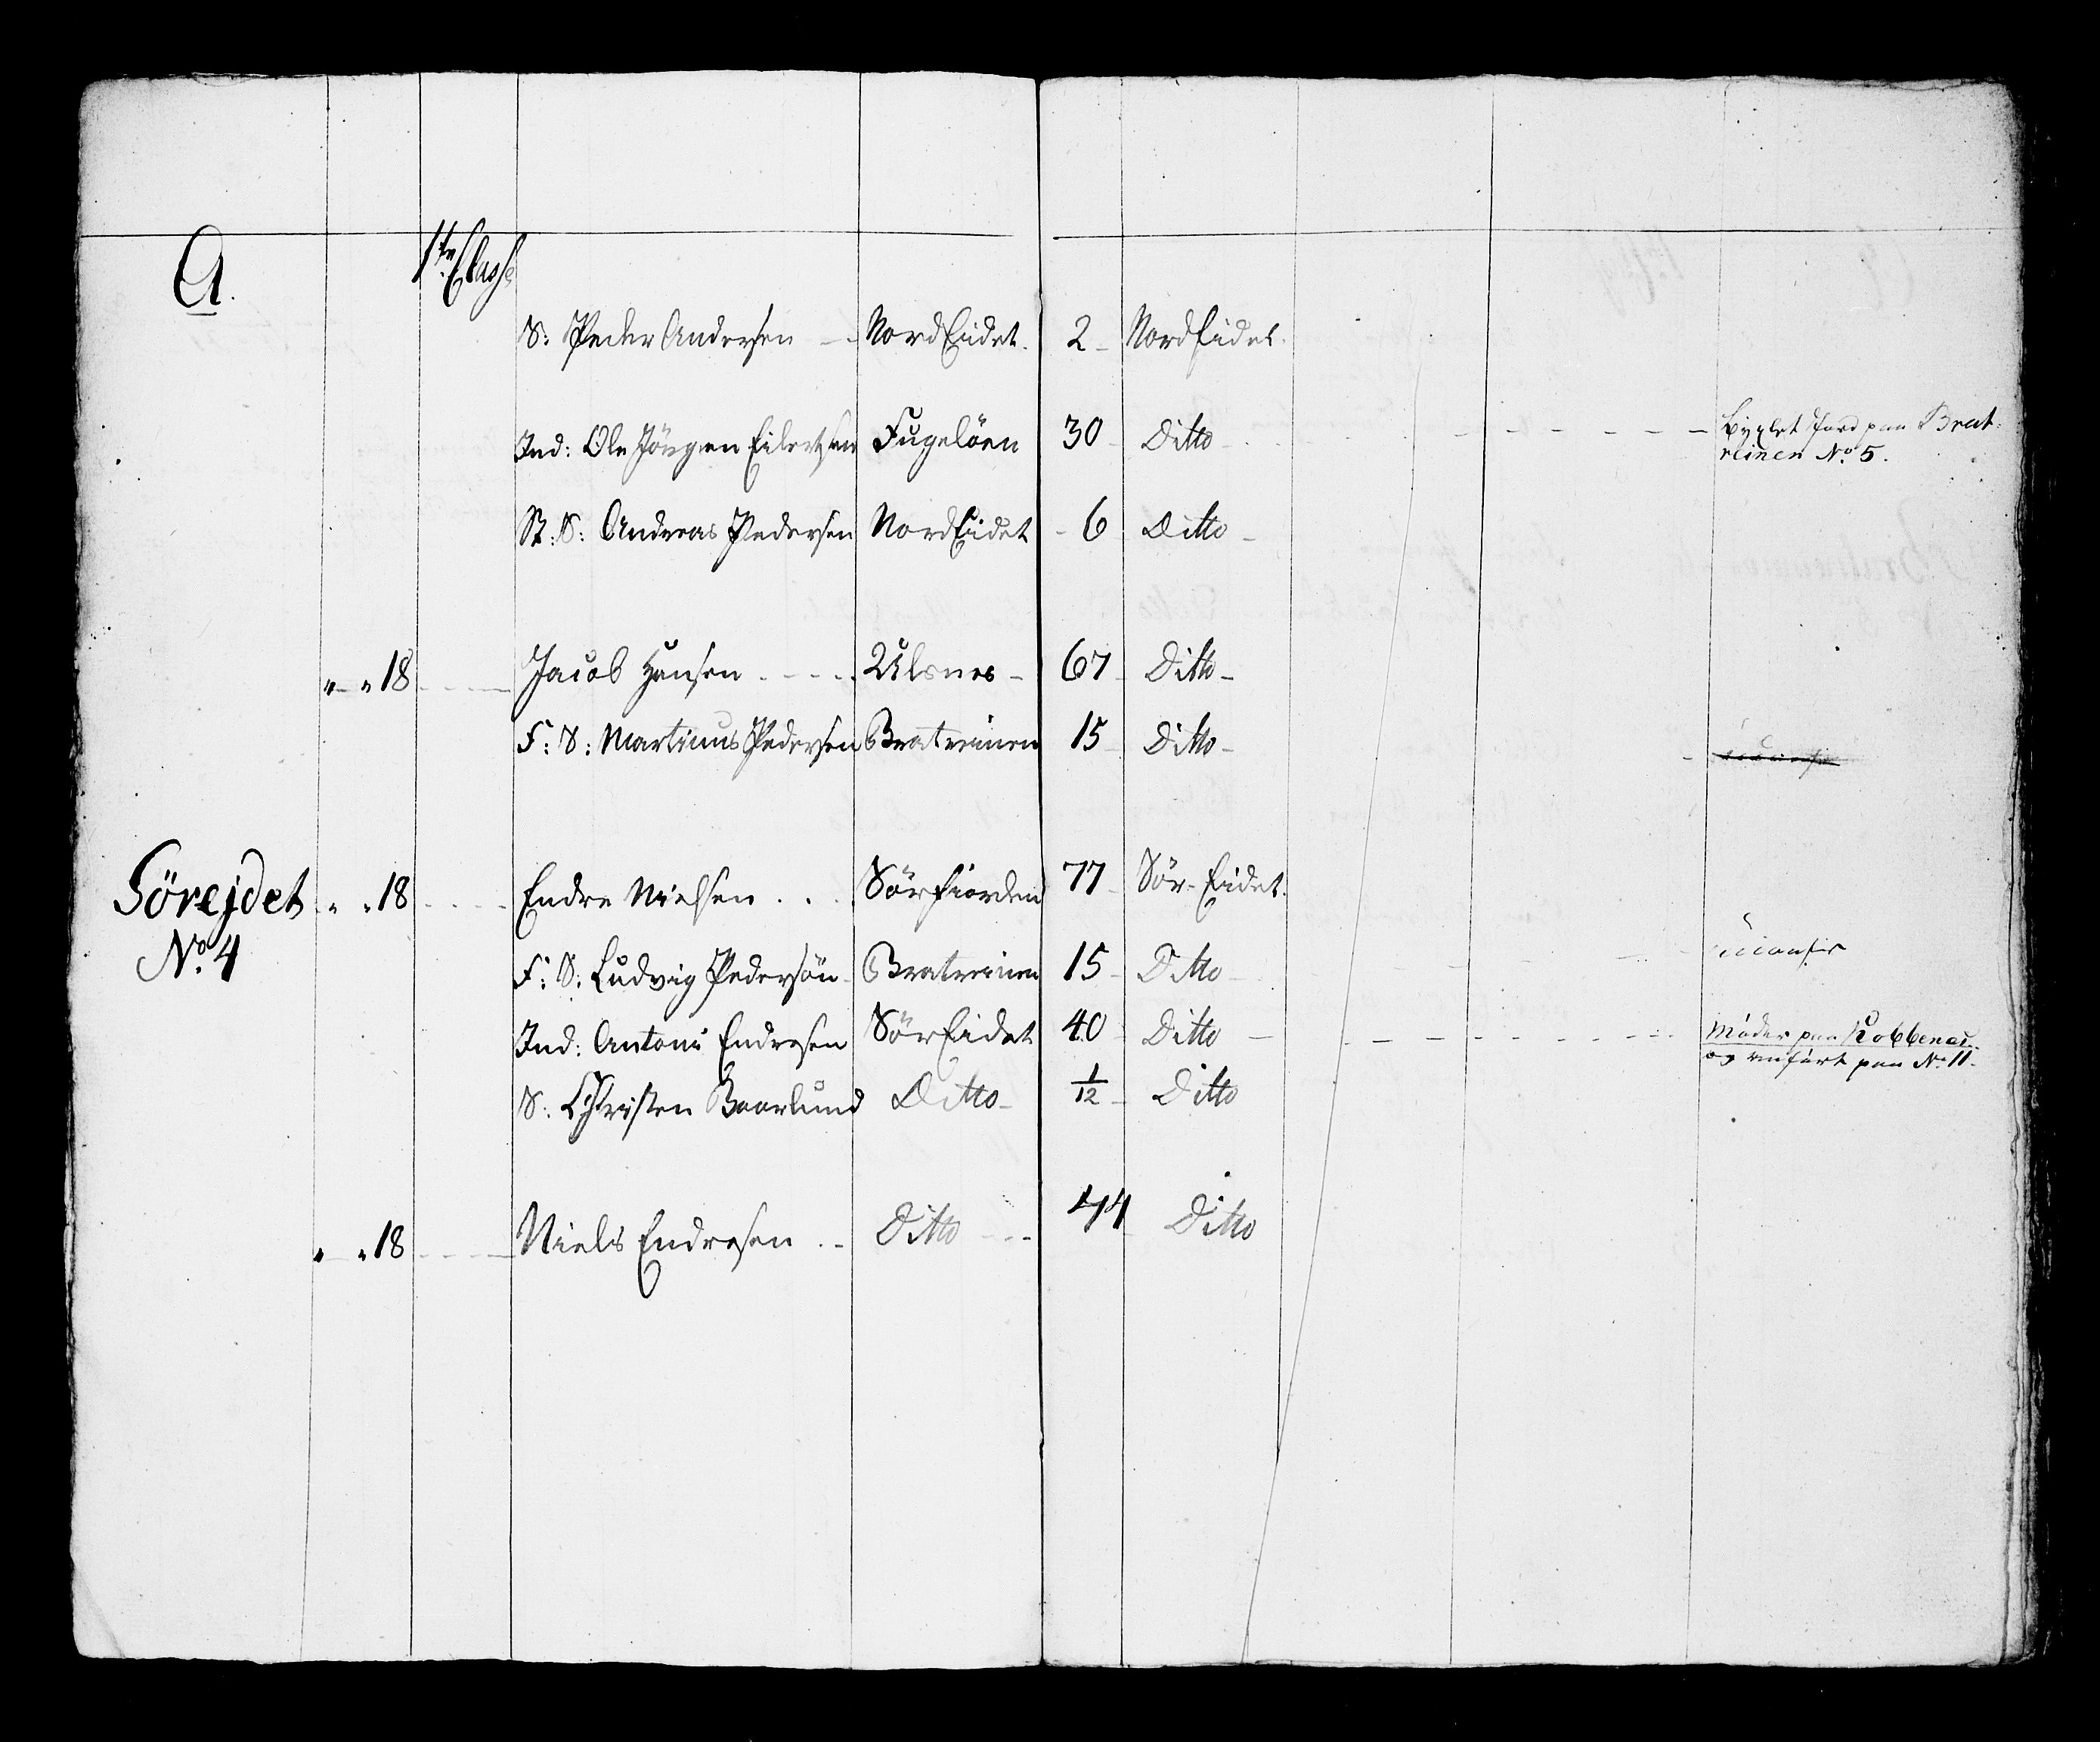 A.
1ste Class
S: Peder Andersen — NordEidet. 2 – NordEidet.
Ind: Ole Jörgen Eilertsen Fugelöen 30 Ditto Byxlet Jord paa Brat-
reinen No 5.
St: S: Andreas Pedersen NordEidet - 6 Ditto –
" " 18 Jacob Hansen Ulsnes – 67 Ditto –
F: S: Martinus Pedersen Bratreinen 15 Ditto –
Sörejdet " " 18 Endre Nielsen Sörfiorden 77 Sör-Eidet.
No. 4
F: S: Ludvig Pedersön Bratreinen 15 Ditto
Ind: Antoni Endresen SörEidet 40 Ditto – Möder paa Kobbenæs.
og anfört paa No 11.
S: Christen Baarlund Ditto – 1/12 Ditto
" " 18 Niels Endresen Ditto 44 Ditto